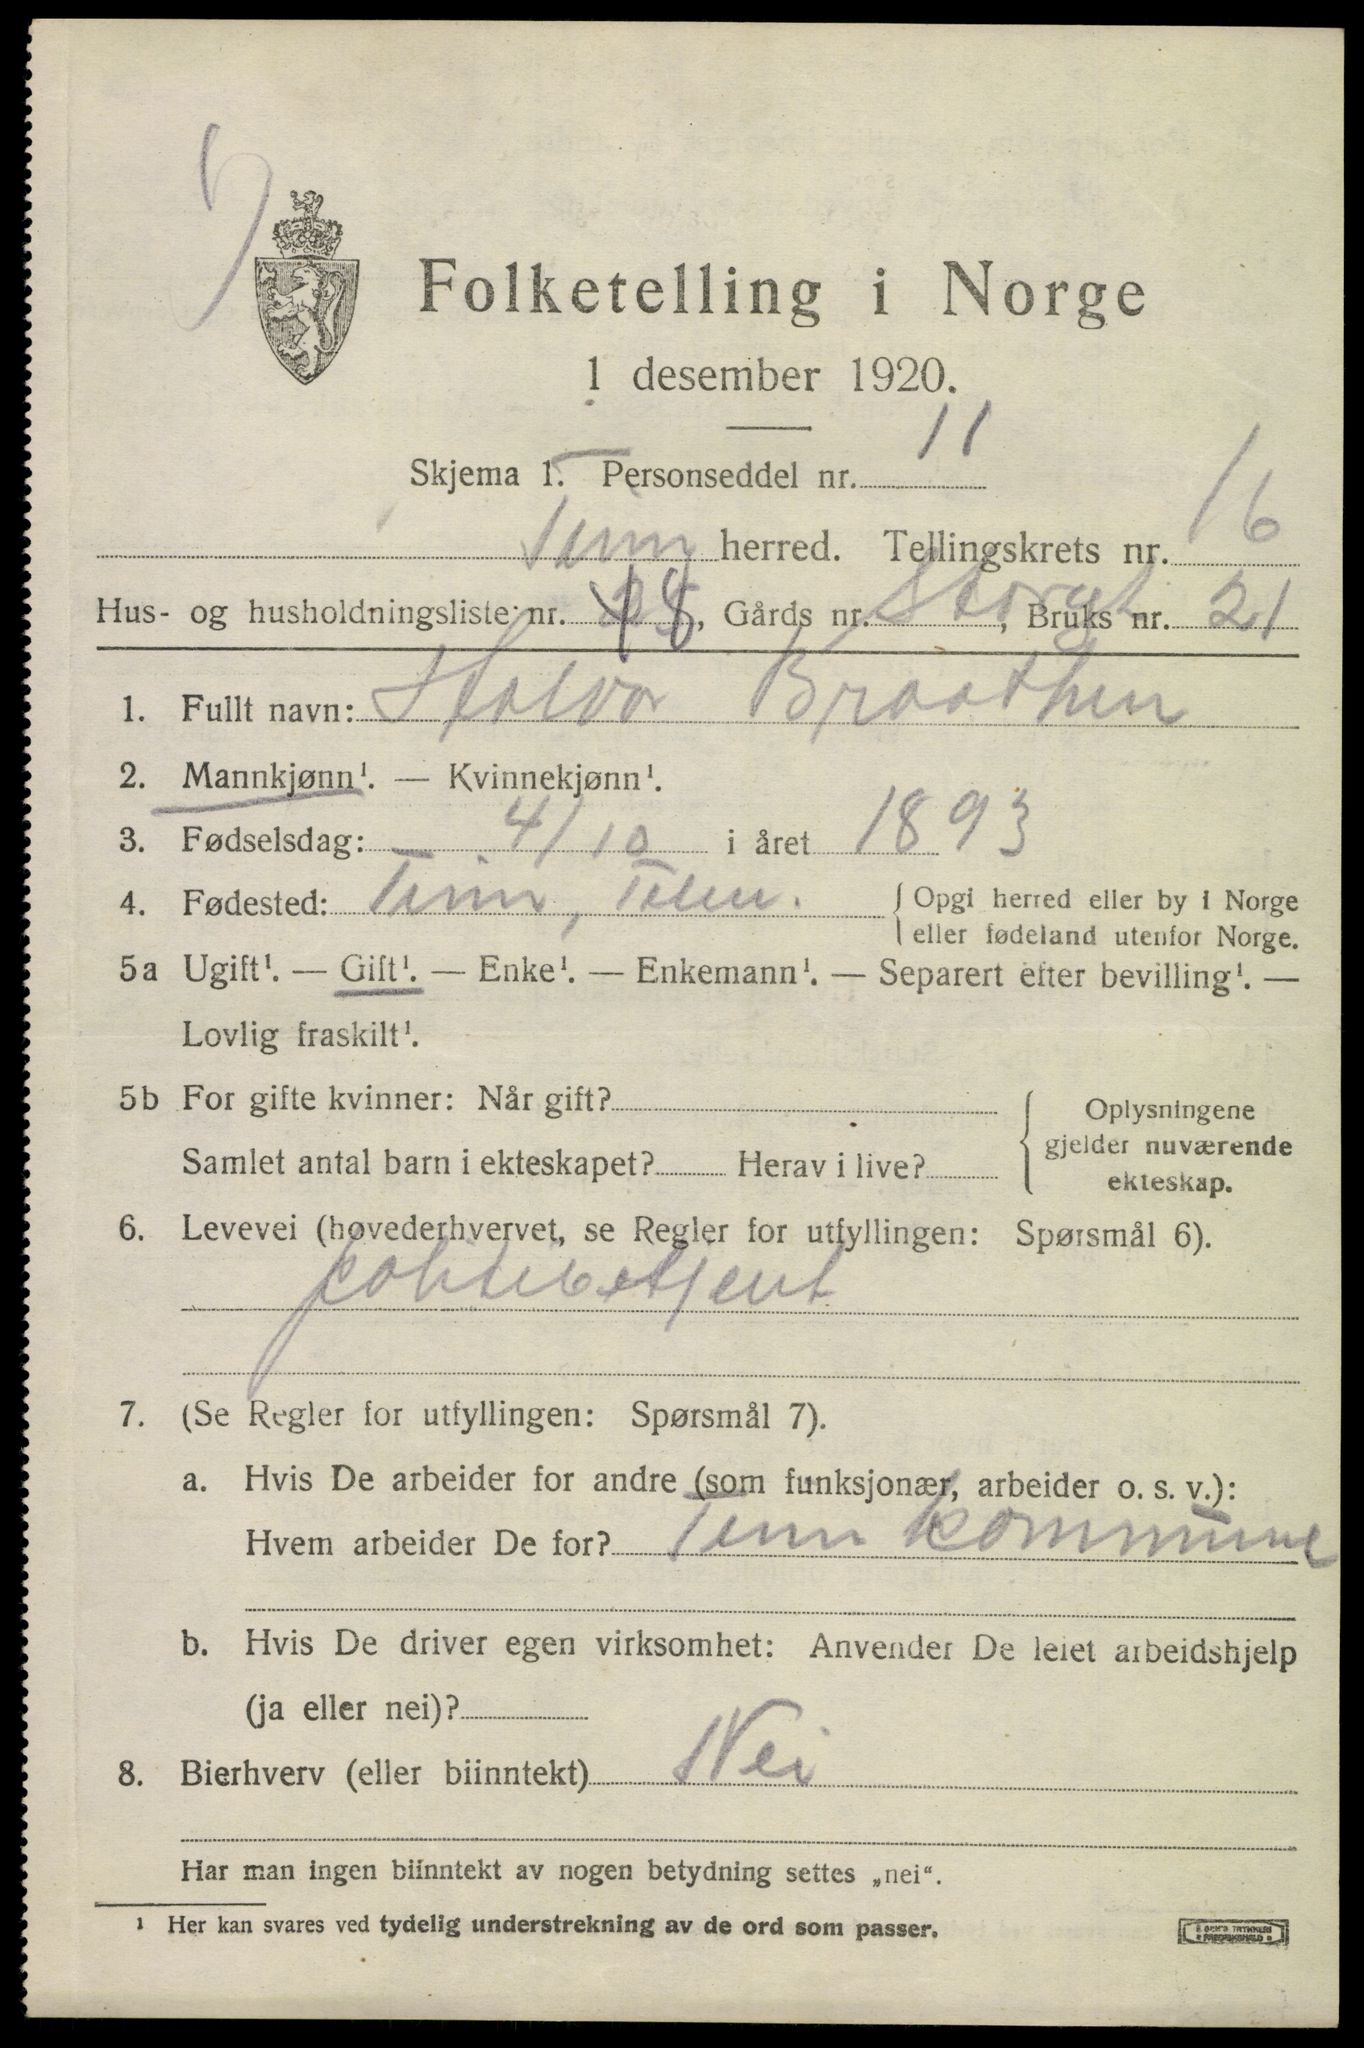 Folketelling i Norge
1 desember 1920.
Skjema 1. Personseddel nr. 11
Tinn herred. Tellingskrets nr. 16
Hus- og husholdningsliste nr. 18, Gårds nr. Storgt, Bruks nr. 21
1. Fullt navn: Halvor Braathen
2. Mannkjønn¹. — Kvinnekjønn¹.
3. Fødselsdag: 4/10 i året 1893
4. Fødested: Tinn, Telem. { Opgi herred eller by i Norge
eller fødeland utenfor Norge.
5a Ugift¹. — Gift¹. — Enke¹. — Enkemann¹. — Separert efter bevilling¹. —
Lovlig fraskilt¹.
5b For gifte kvinner: Når gift?
Samlet antal barn i ekteskapet? Herav i live?
{ Oplysningene
gjelder nuværende
ekteskap.
6. Levevei (hovederhvervet, se Regler for utfyllingen: Spørsmål 6).
politibetjent
7. (Se Regler for utfyllingen: Spørsmål 7).
a. Hvis De arbeider for andre (som funksjonær, arbeider o. s. v.):
Hvem arbeider De for? Tinn kommune
b. Hvis De driver egen virksomhet: Anvender De leiet arbeidshjelp
(ja eller nei)?
8. Bierhverv (eller biinntekt) Nei
Har man ingen biinntekt av nogen betydning settes „nei“.
¹ Her kan svares ved tydelig understrekning av de ord som passer.